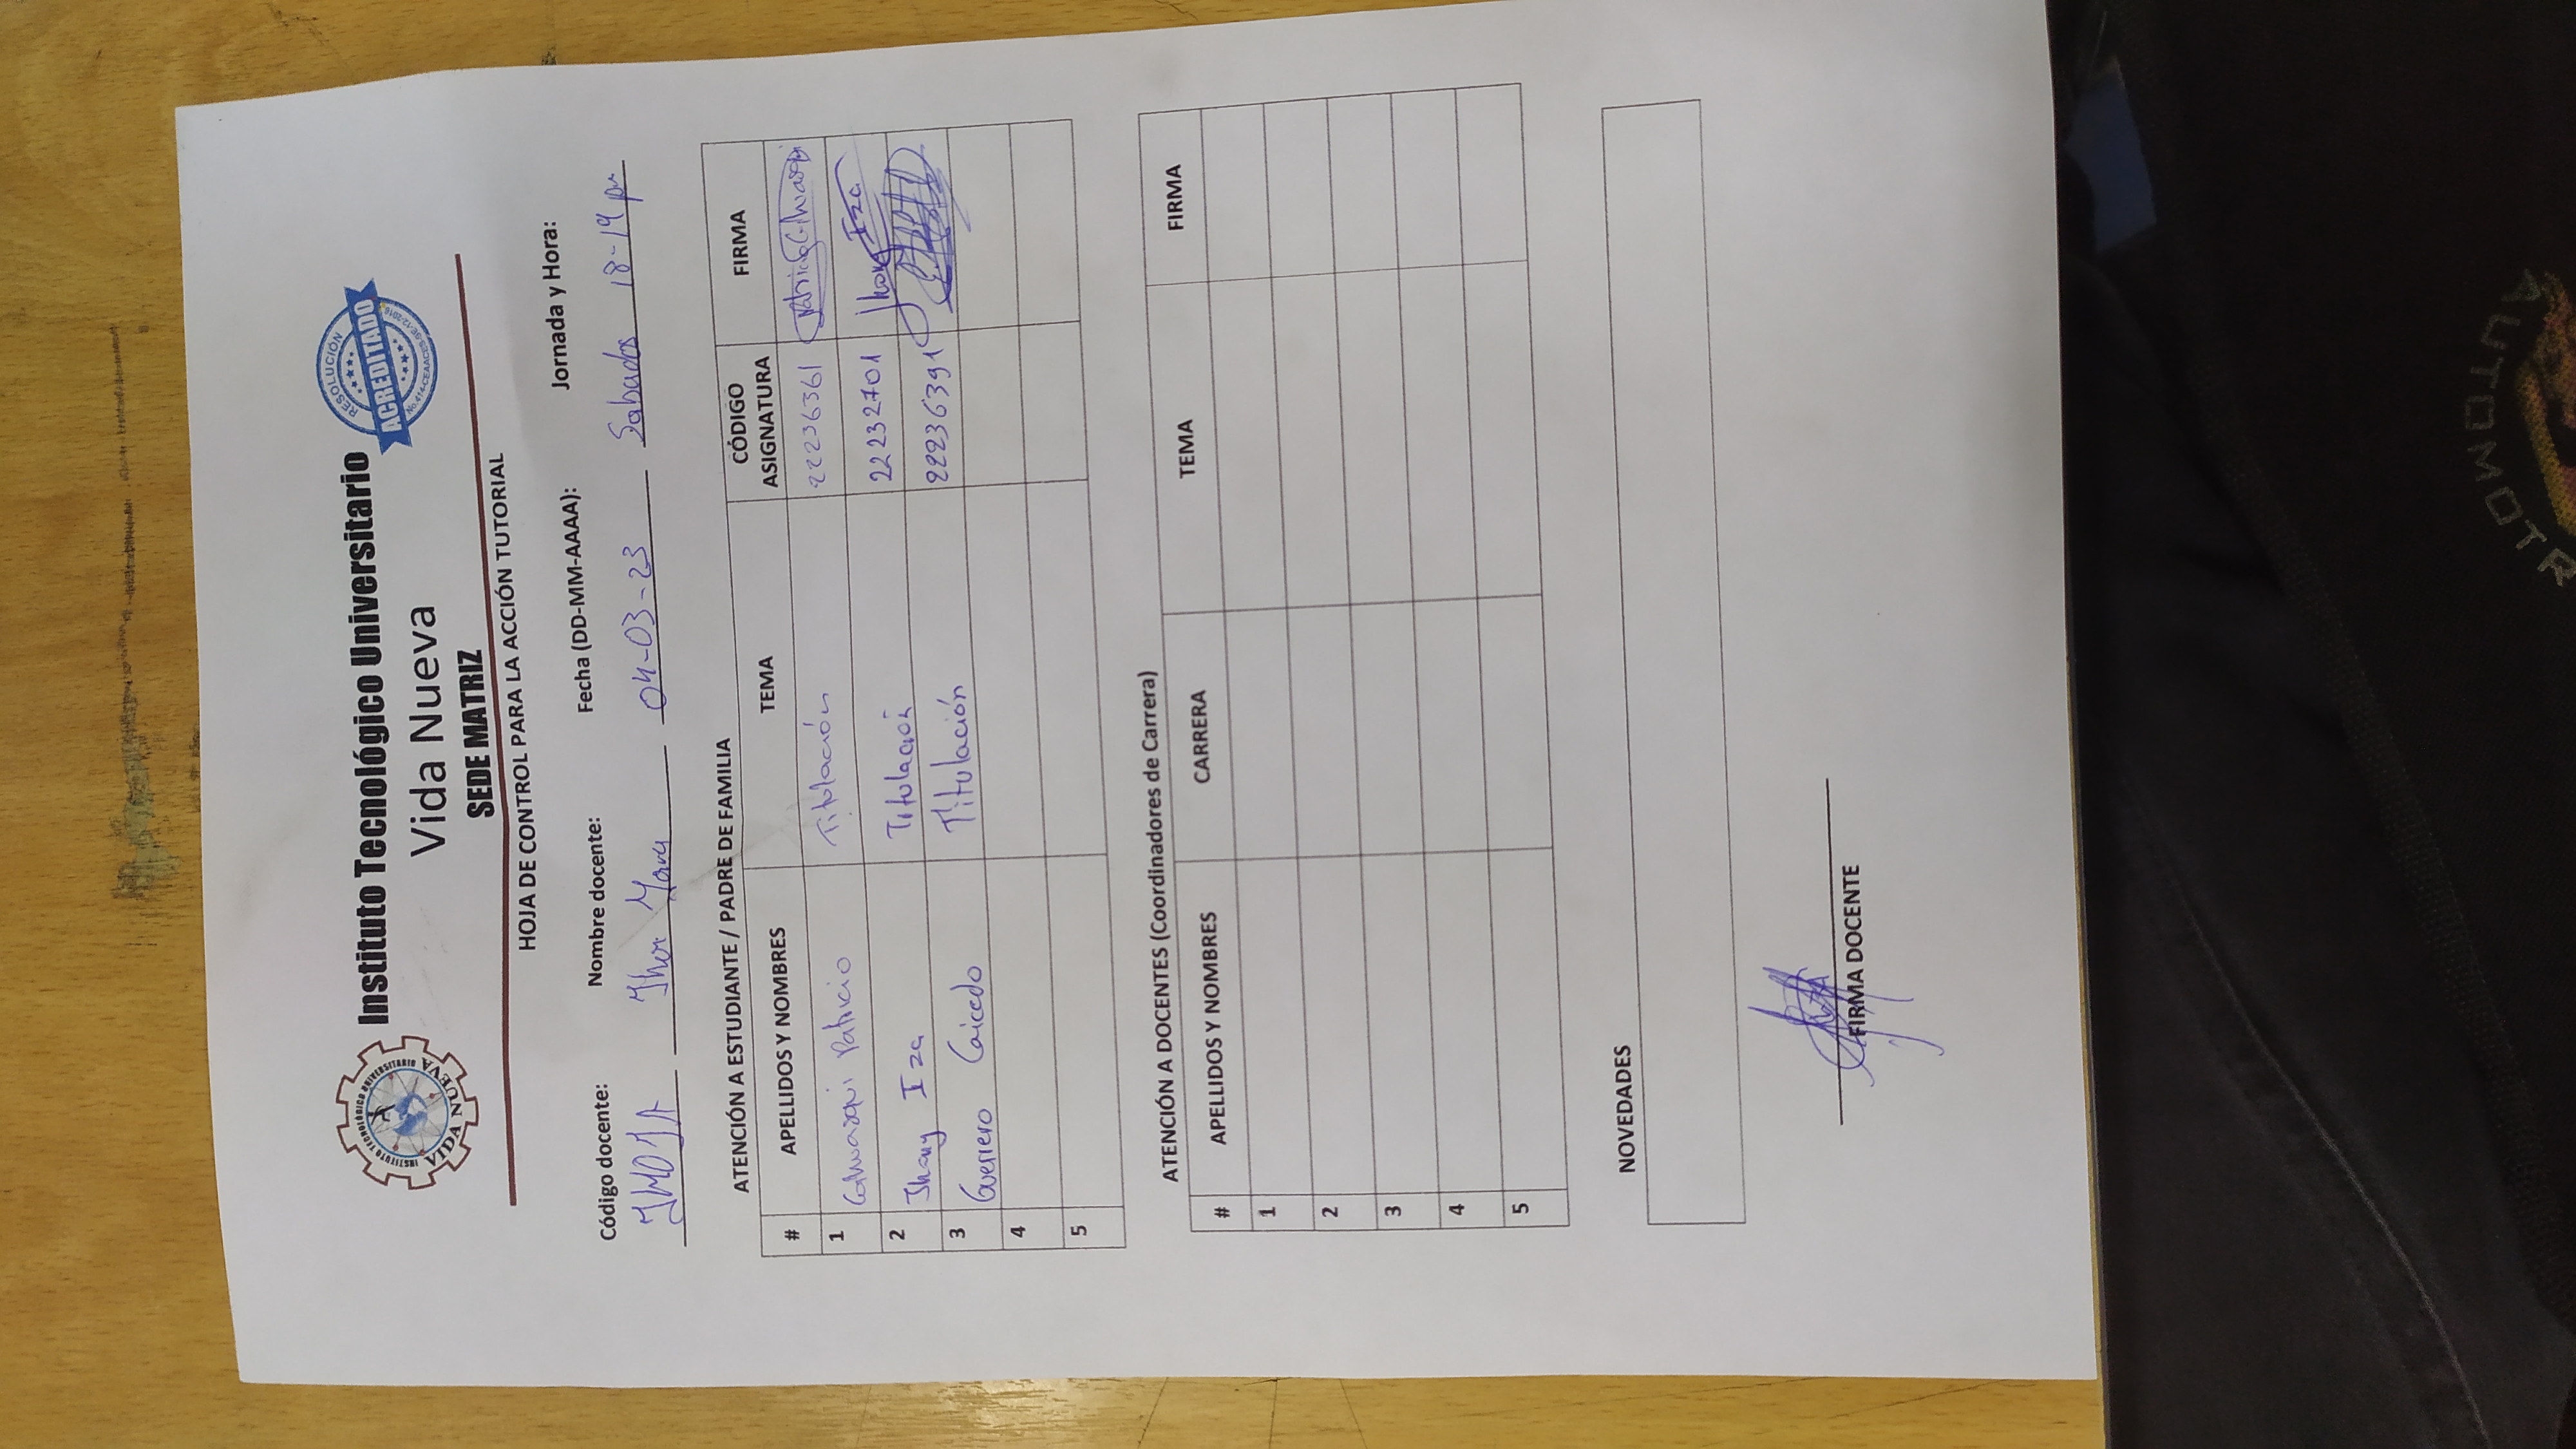 INSTITUTO TECNOLÓGICO UNIVERSITARIO
VIDA NUEVA
Instituto Tecnológico Universitario
Vida Nueva
SEDE MATRIZ
RESOLUCIÓN
ACREDITADO
HOJA DE CONTROL PARA LA ACCIÓN TUTORIAL
Código docente: Nombre docente: Fecha (DD-MM-AAAA): Jornada y Hora:
04-03-23 Sabados 18-19 pm
ATENCIÓN A ESTUDIANTE / PADRE DE FAMILIA
# APELLIDOS Y NOMBRES TEMA CÓDIGO ASIGNATURA FIRMA
1 Patricio Titulación 22236361
2 Jhony Iza Titulación 22232701 Jhony Iza
3 Guerrero Caicedo Titulación 22236391
4
5
ATENCIÓN A DOCENTES (Coordinadores de Carrera)
# APELLIDOS Y NOMBRES CARRERA TEMA FIRMA
1
2
3
4
5
NOVEDADES
FIRMA DOCENTE
AUTOMOTR